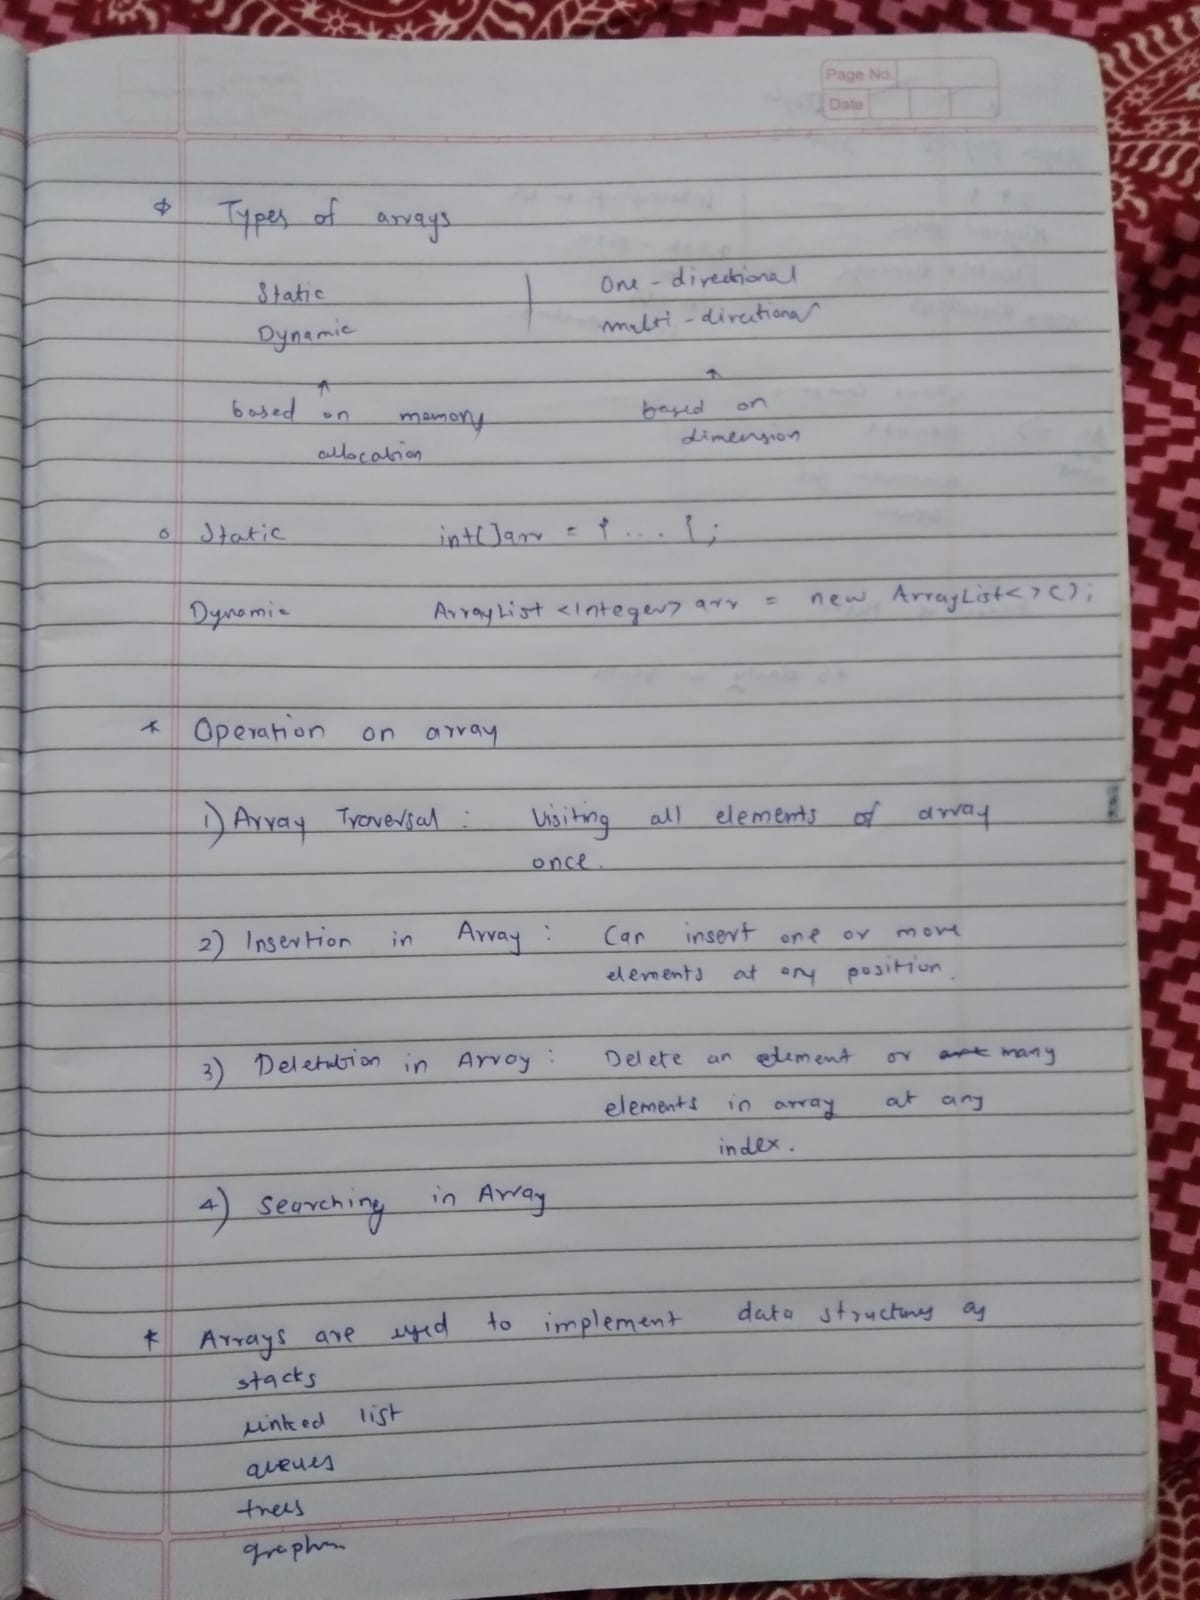 Page No.
Date
Types of arrays
Static | One-directional
Dynamic multi-directional
↑ ↑
based on memory based on
allocation dimension
o Static int[]arr = { ... };
Dynamic ArrayList <Integer> arr = new ArrayList<>();
* Operation on array
1) Array Traversal : Visiting all elements of array
once.
2) Insertion in Array : Can insert one or more
elements at any position.
3) Deletion in Array : Delete an element or many
elements in array at any
index.
4) Searching in Array
* Arrays are used to implement data structures as
stacks
linked list
queues
trees
graphs